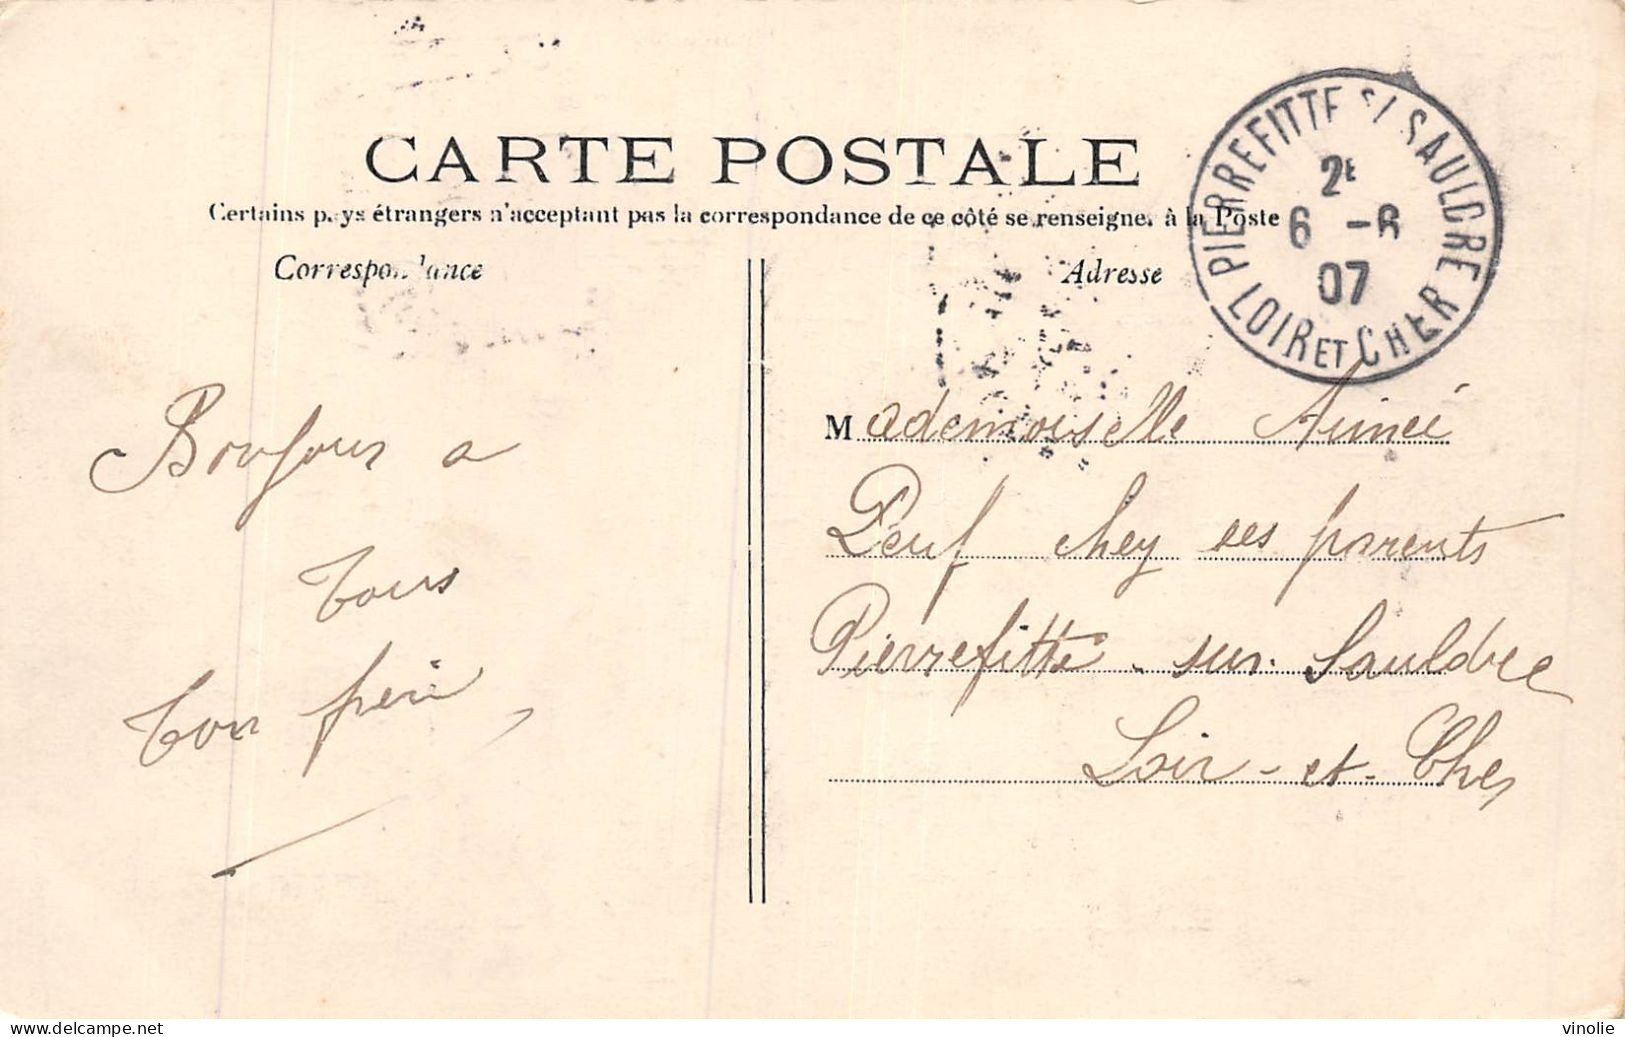 CARTE POSTALE
Certains pays étrangers n'acceptant pas la correspondance de ce côté se renseigner à la Poste
Correspondance
Adresse
PIERREFITTE S/ SAULDRE
2E
6 -6
07
LOIR ET CHER
Bonjour a
tous
ton frère
Mademoiselle Aimée
chez ses parents
Pierrefitte - sur - Sauldre
Loir - et - Cher
delcampe.net
vinolie